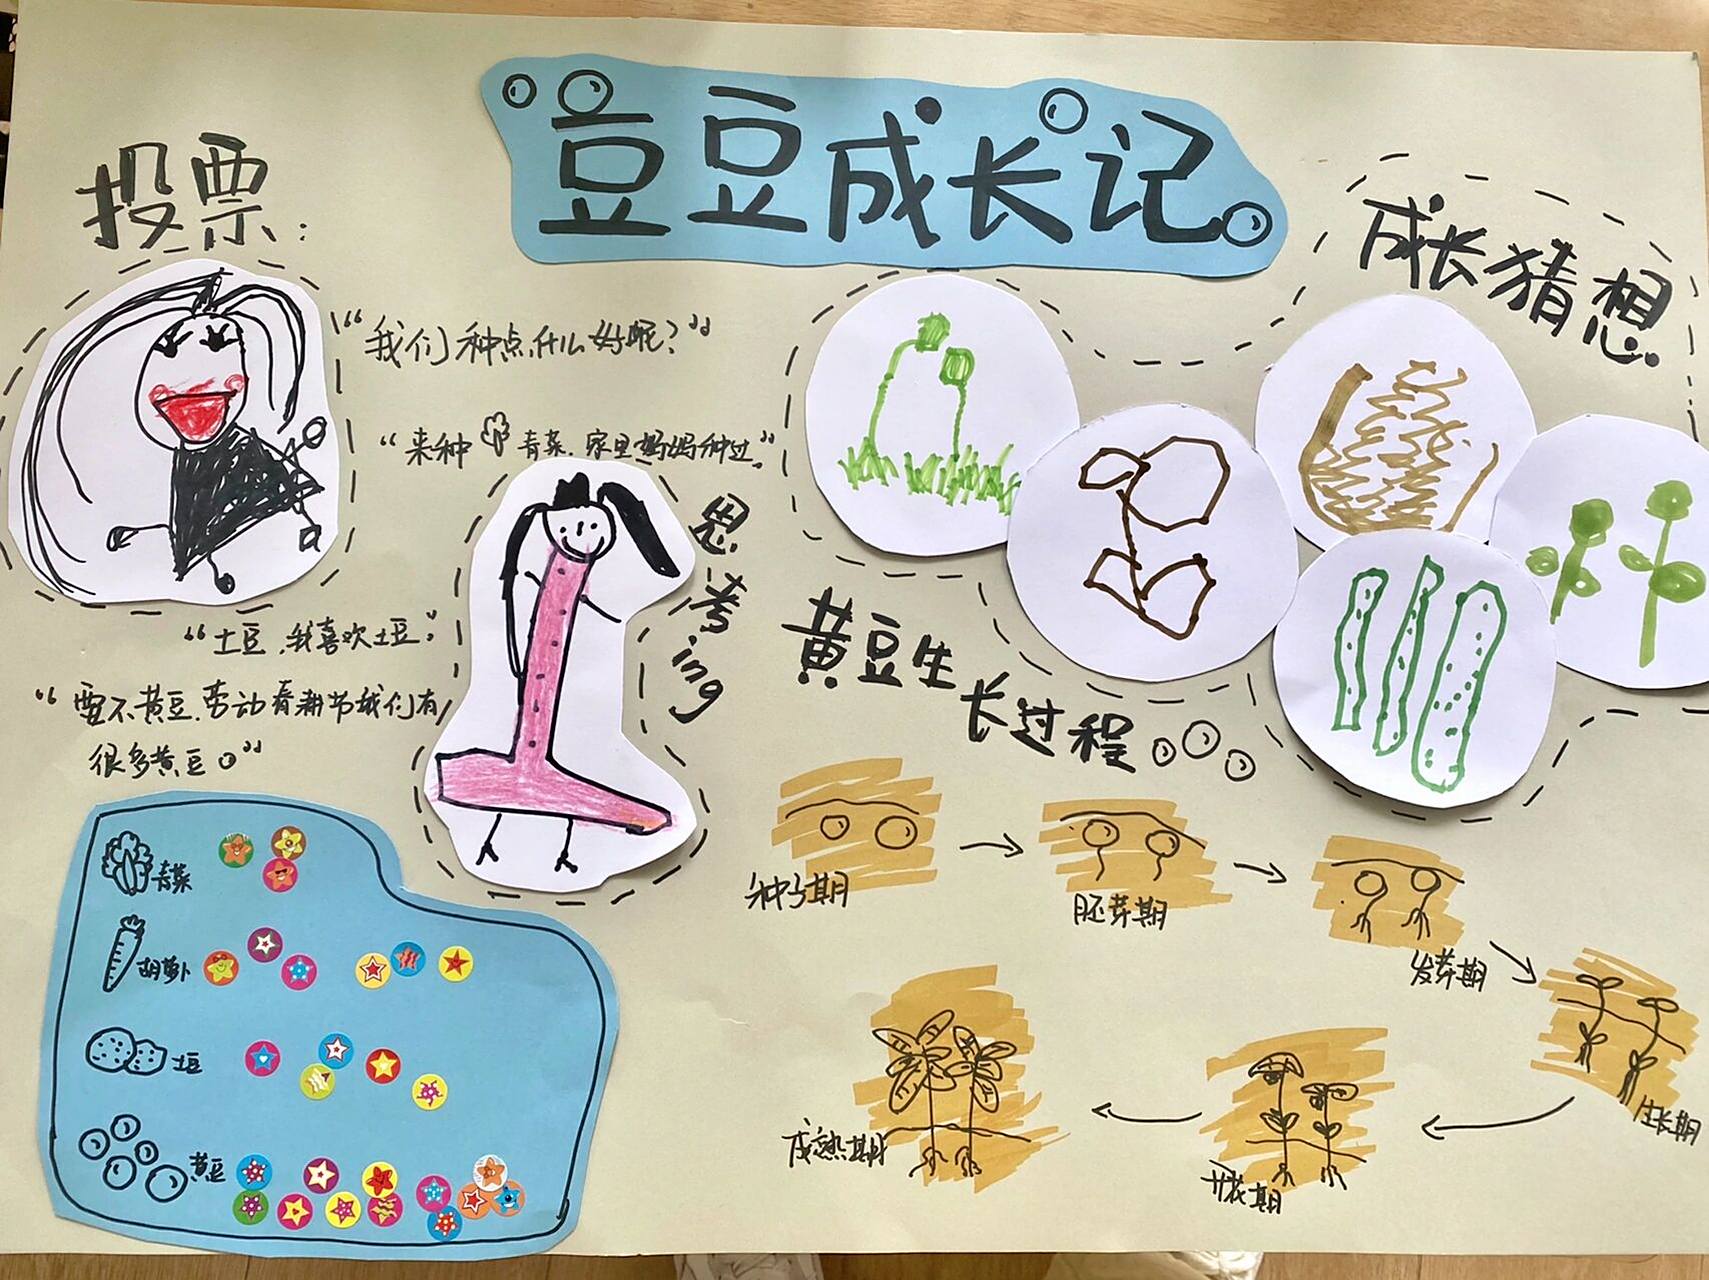 豆豆成长记
投票:
“我们种点什么好呢?”
“来种青菜.家里妈妈种过.”
“土豆,我喜欢土豆.”
“要不黄豆.劳动春耕节我们有
很多黄豆。”
思考ing
青菜
胡萝卜
土豆
黄豆
成长猜想
黄豆生长过程
种子期
胚芽期
发芽期
生长期
开花期
成熟期